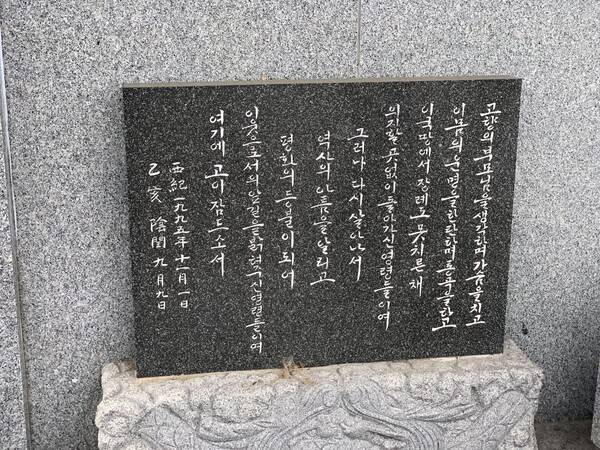 고향의 부모님을 생각하며 가슴을 치고
이 몸의 운명을 한탄하며 통곡을 하고
이국땅에서 장례도 못 치른 채
의지할 곳 없이 돌아가신 영령들이여
그러나 다시 살아나서
역사의 아픔을 알리고
평화의 등불이 되어
이웃으로서의 앞길을 밝혀주신 영령들이여
여기에 고이 잠드소서
西紀 一九九五年 十一月 一日
乙亥 陰閏 九月 九日